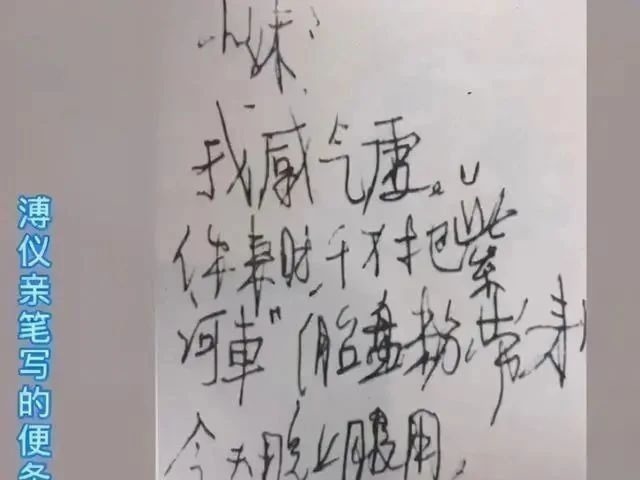 小妹：
我感气虚。
你来时，千万把“紫
河車”（胎盘粉）带来
今天晚上服用，
溥仪亲笔写的便条